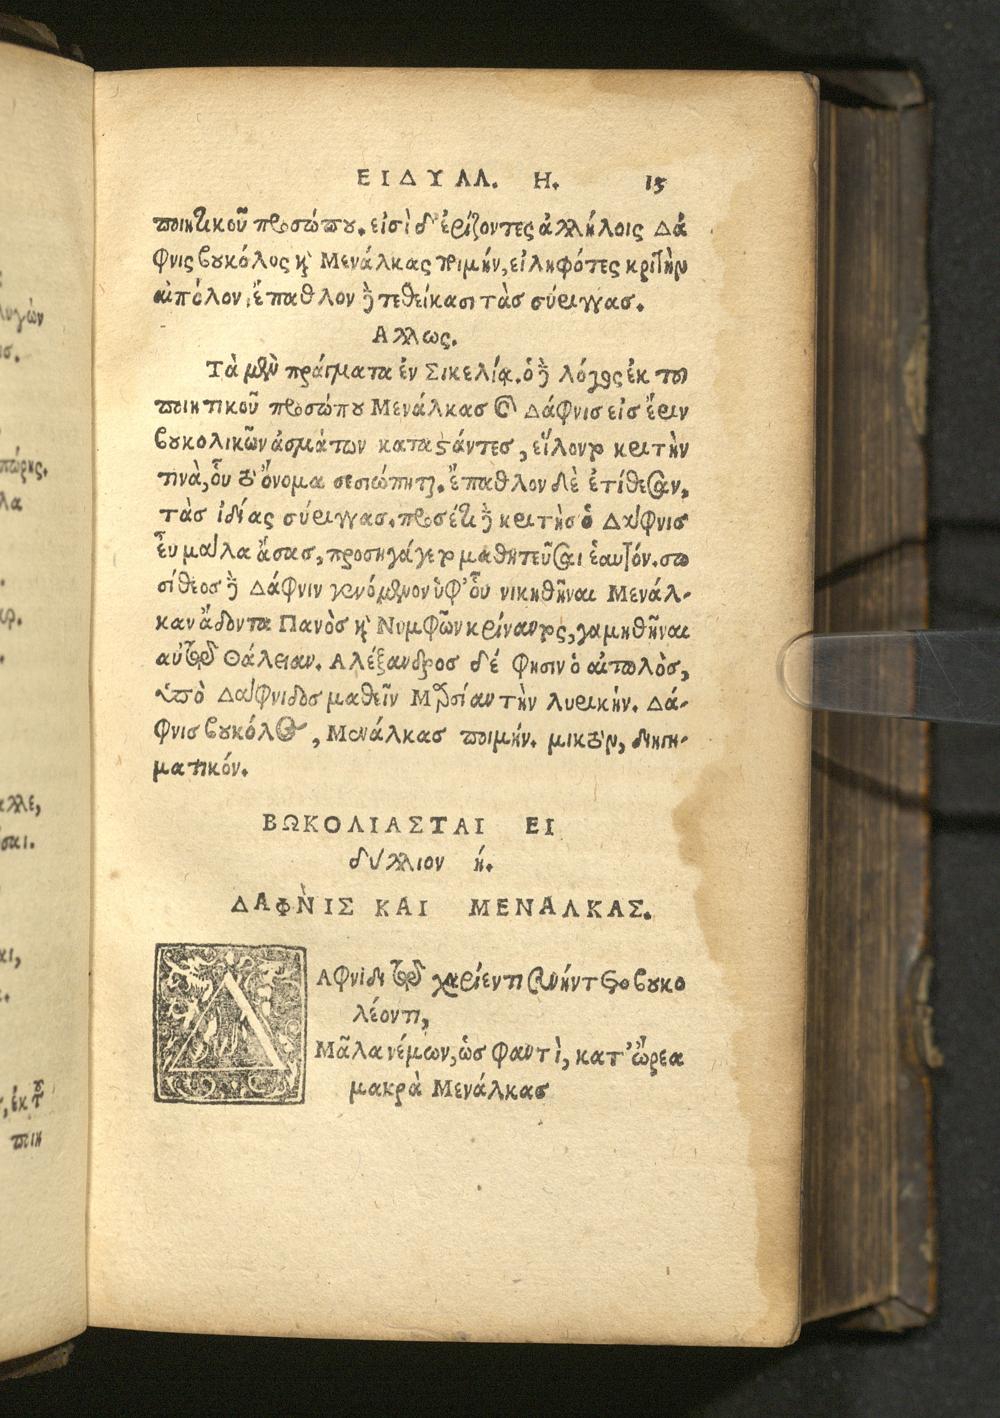 ΕΙΔΥΛΛ. Η. 15
ποιητικοῦ προσώπου. εἰσὶ δ' ἐρίζοντες ἀλλήλοις Δά
φνις βουκόλος καὶ Μενάλκας ποιμήν, εἰληφότες κριτὴν
αἰπόλον, ἔπαθλον δὲ τεθείκασι τὰς σύριγγας.
Αλλως.
Τὰ μὲν πράγματα ἐν Σικελίᾳ. ὁ δὲ λόγος ἐκ τοῦ
ποιητικοῦ προσώπου Μενάλκας καὶ Δάφνις εἰς ἔριν
βουκολικῶν ἀσμάτων καταστάντες, εἵλοντο κριτὴν
τινὰ, οὗ τὸ ὄνομα σεσιώπηται. ἔπαθλον δὲ ἐτίθεσαν,
τὰς ἰδίας σύριγγας. προσέτι δὲ κριτὴς ὁ Δάφνις
εὖ μάλα ᾄσας, προσηγάγετο μαθητεῦσαι ἑαυτόν. σω
σίθεος δὲ Δάφνιν γενόμενον ὑφ' οὗ νικηθῆναι Μενάλ-
καν ᾄδοντα Πανὸς καὶ Νυμφῶν κρίναντος, γαμηθῆναι
αὐτῷ Θάλειαν. Αλέξανδρος δέ φησιν ὁ αἰτωλὸς,
ὑπὸ Δάφνιδος μαθεῖν Μαρσίαν τὴν λυρικήν. Δά-
φνις βουκόλος, Μενάλκας ποιμήν. μικτὸν, διηγη-
ματικόν.
ΒΩΚΟΛΙΑΣΤΑΙ ΕΙ
δύλλιον ή.
ΔΑΦΝΙΣ ΚΑΙ ΜΕΝΑΛΚΑΣ.
ΔΑφνιδι τῷ χαρίεντι συνήντετο βουκο
λέοντι,
Μᾶλα νέμων, ὡς φαντὶ, κατ' ὤρεα
μακρὰ Μενάλκας
λυγὼν
πώρης.
λα
αλλε,
σαι.
αι,
, ἐκ τοῦ
ποιη